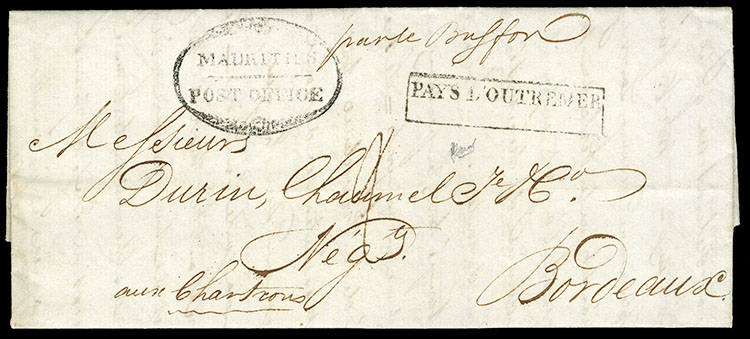 par le Buffon
MAURITIUS
POST OFFICE
PAYS D'OUTREMER
Messieurs
Durin, Chaumel Je & Co.
Négts.
aux Chartrons
Bordeaux.